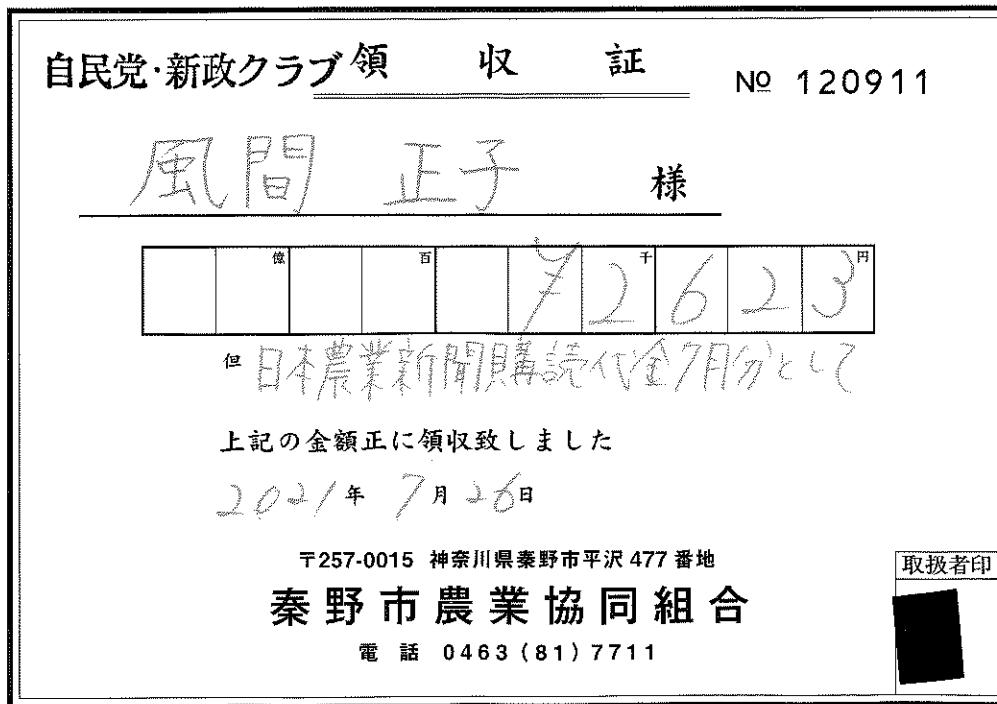 自民党・新政クラブ 領収証 № 120911
風間 正子 様
億 百 千 円
¥2623
但 日本農業新聞購読代金7月分として
上記の金額正に領収致しました
2021年 7月 26日
〒257-0015 神奈川県秦野市平沢 477 番地
秦野市農業協同組合
電話 0463 (81) 7711
取扱者印